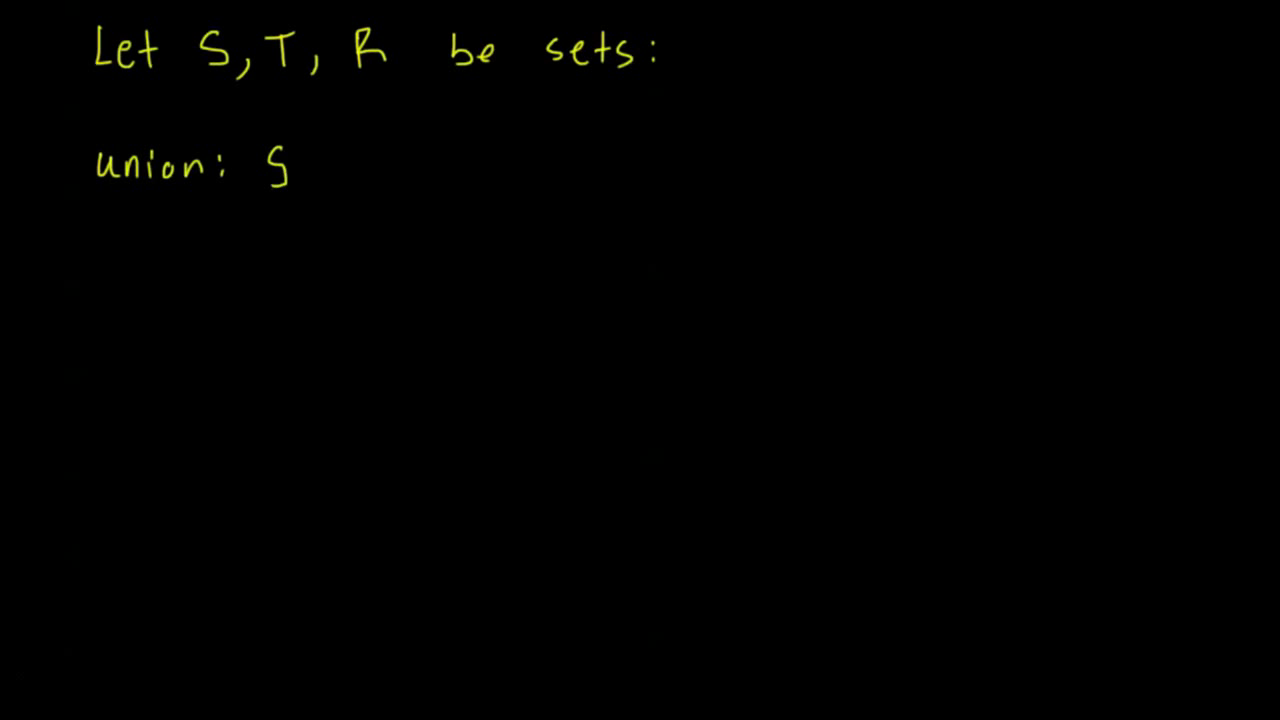 Let S, T, R be sets:
union: S